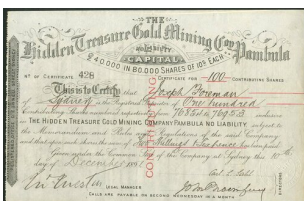 THE
Hidden Treasure Gold Mining Coy Pambula
NO LIABILITY
CAPITAL
£40,000 IN 80,000 SHARES OF 10/- EACH
No OF CERTIFICATE 428 CERTIFICATE FOR 100 CONTRIBUTING SHARES
This is to Certify that Joseph Foreman
of Sydney is the Registered Proprietor of One hundred
Contributing Shares numbered from 76854 to 76953 inclusive
THE HIDDEN TREASURE GOLD MINING COMPANY PAMBULA NO LIABILITY subject to
the Memorandum and Rules and Regulations of the said Company
and that upon each share the sum of
Given under the Common Seal of the Company at Sydney this 10th
day of December
CONTRIBUTING
LEGAL MANAGER
DIRECTORS
CALLS ARE PAYABLE ON SECOND WEDNESDAY IN A MONTH